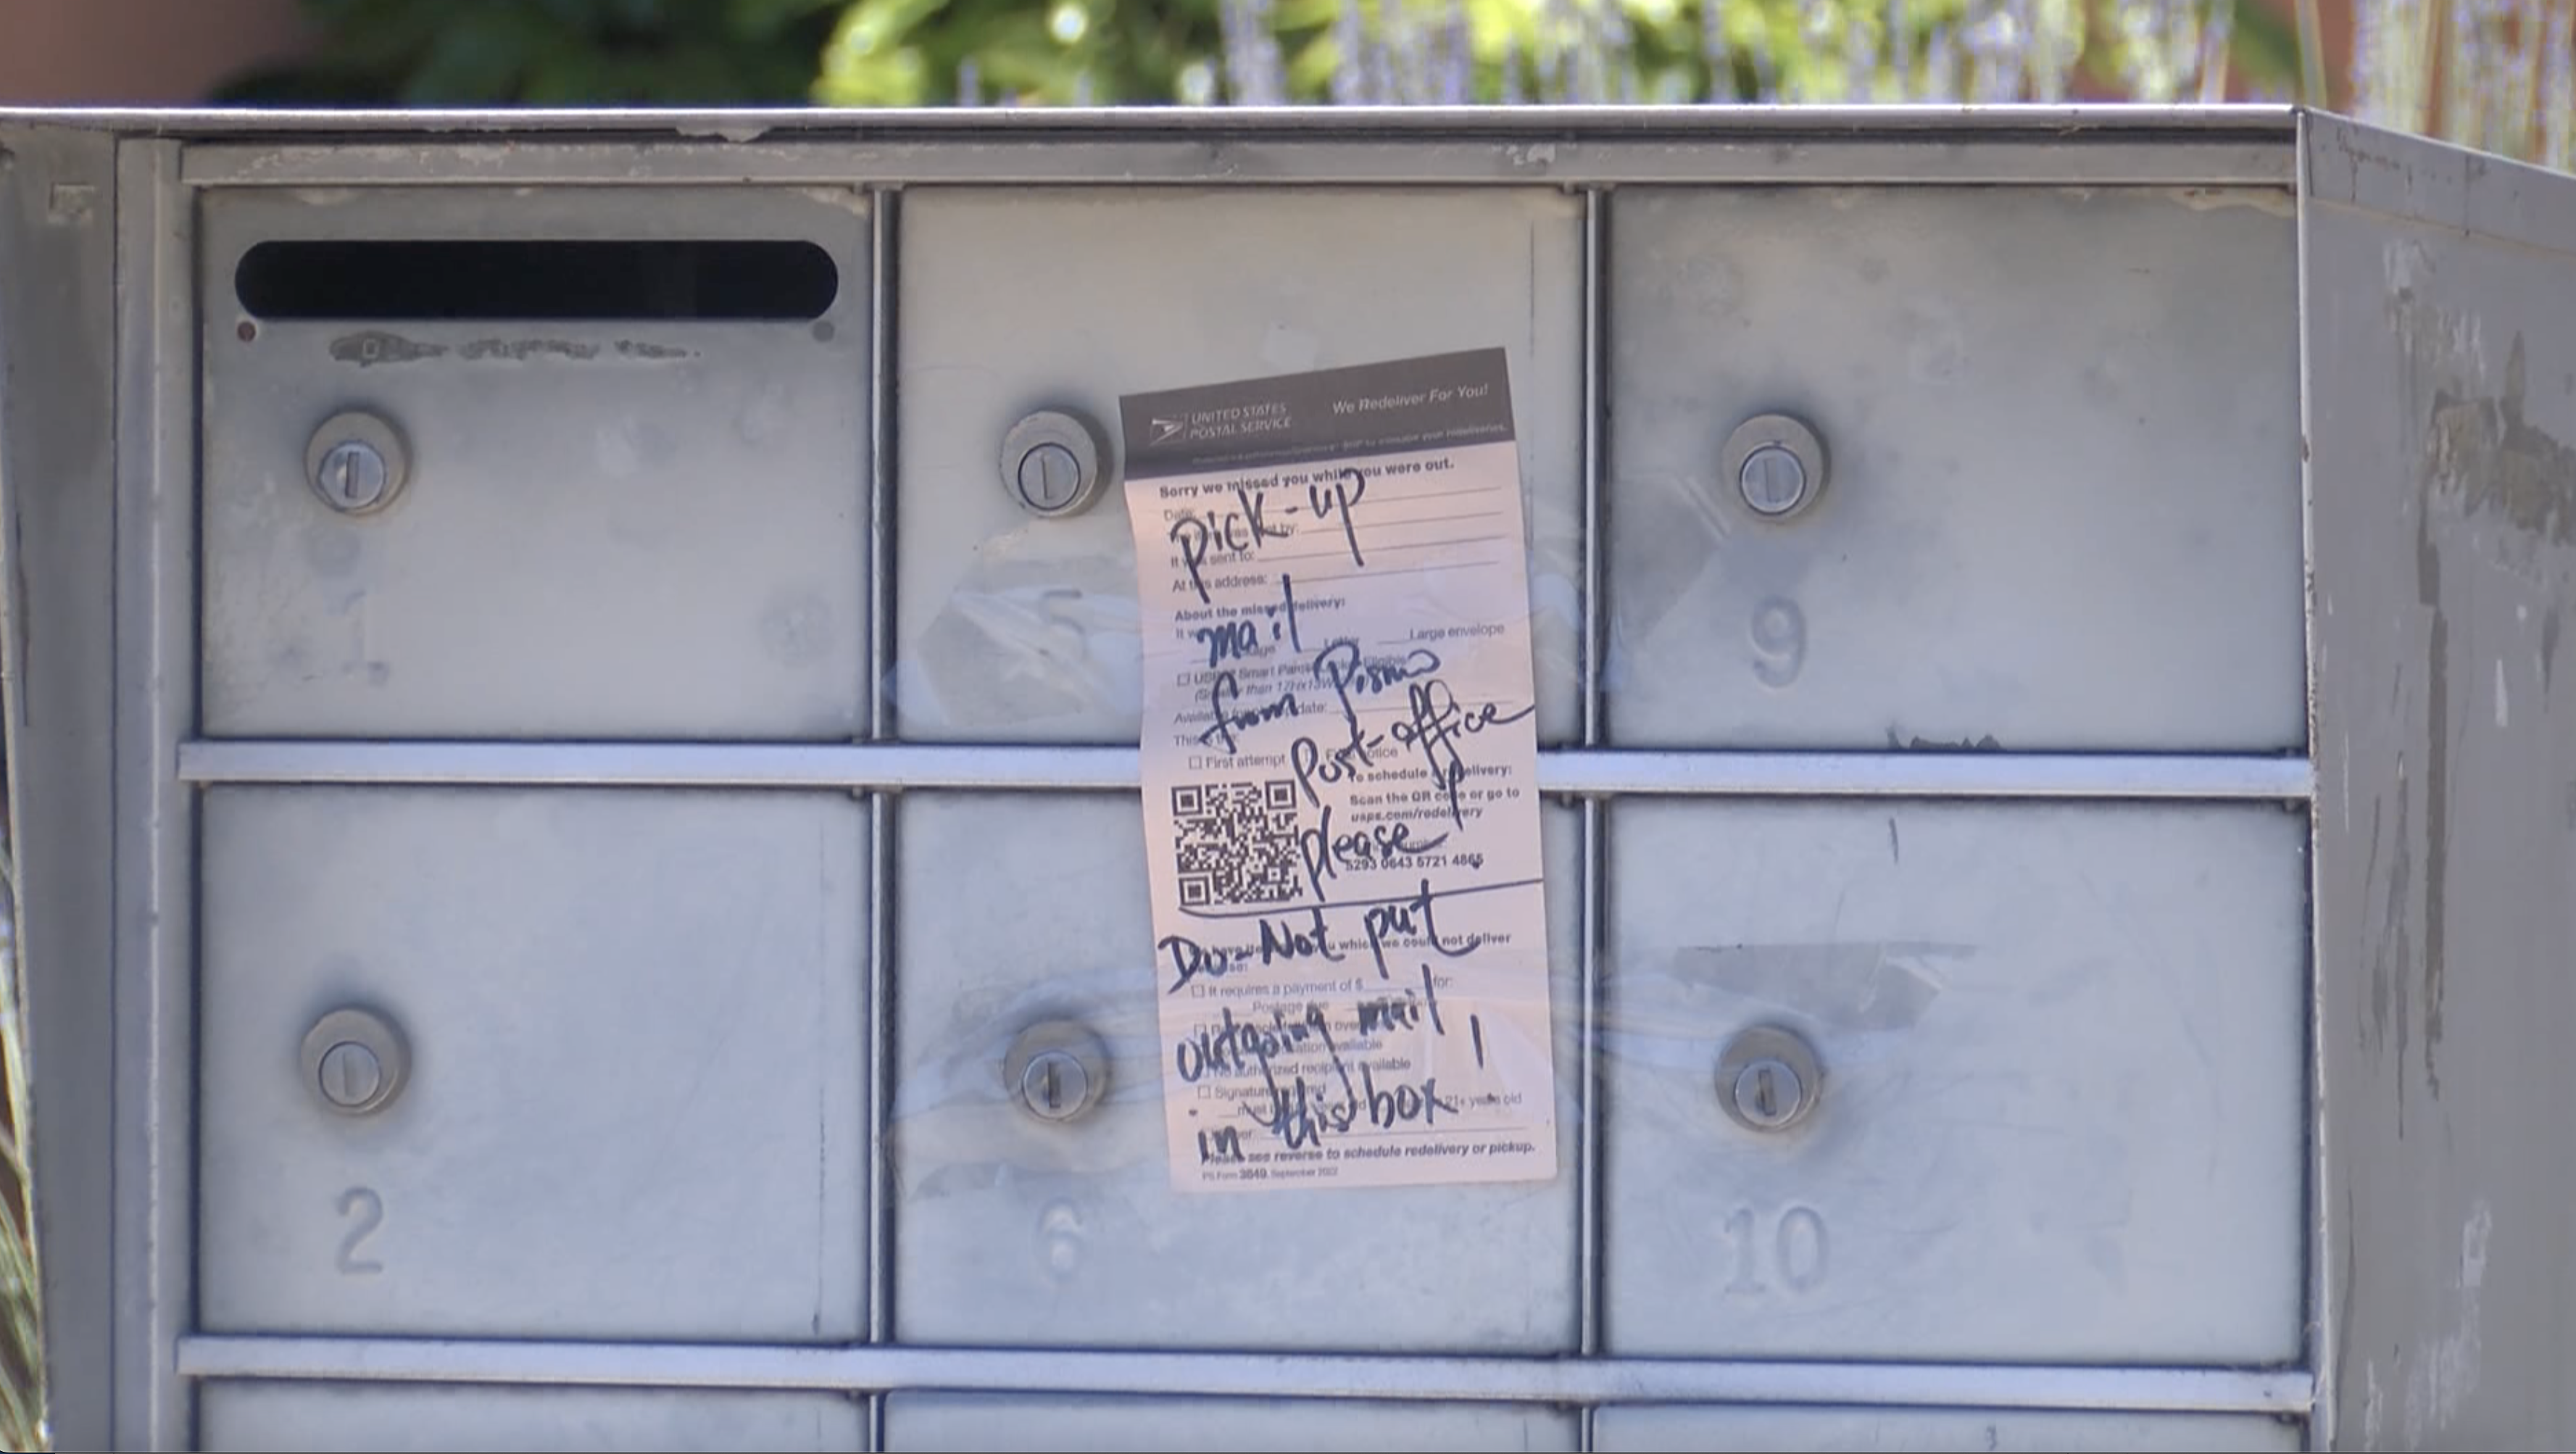 UNITED STATES
POSTAL SERVICE
We Redeliver For You!
Sorry we missed you while you were out.
Date:
Pick-up
sent to:
At this address:
About the missed delivery:
mail
Large envelope
from Pismo
First attempt
Post-office
To schedule redelivery:
Scan the QR code or go to
usps.com/redelivery
please
5293 0643 5721 4865
Do-Not put
which we could not deliver
It requires a payment of $ for:
Postage due
outgoing mail
No authorized recipient available
Signature required
21+ years old
in this box
Please see reverse to schedule redelivery or pickup.
PS Form 3849, September 2022
1
9
2
6
10